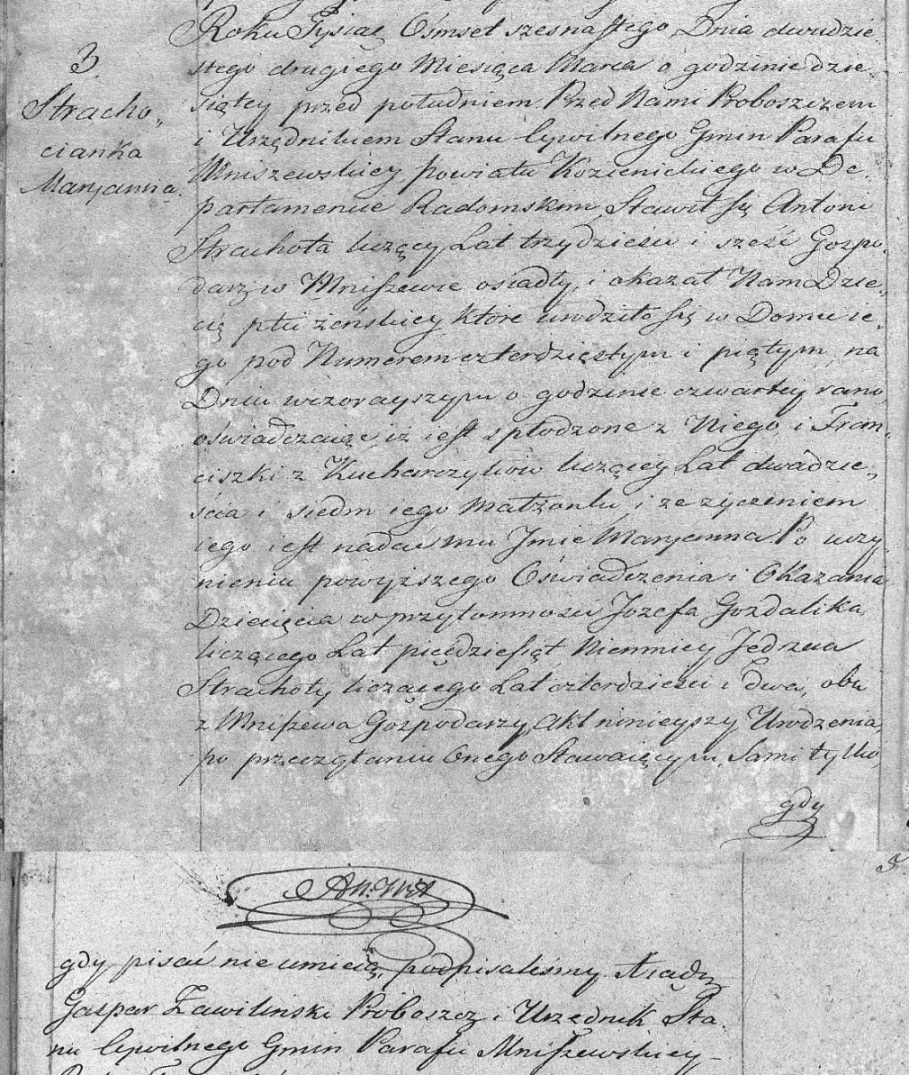 3
Stracho-
cianka
Maryanna
Roku Tysiąc Osmset szesnastego Dnia dwudzie-
stego drugiego Miesiąca Marca o godzinie dzie-
siątey przed południem Przed Nami Proboszczem
i Urzędnikiem Stanu Cywilnego Gmin Parafii
Mniszewskiey powiatu Kozienickiego w De-
partamencie Radomskim, Stawił się Antoni
Strachota liczący Lat trzydzieści i sześć Gospo-
darz w Mniszewie osiadły, i okazał Nam Dzie-
cię płci żeńskiey które urodziło się w Domu ie-
go pod Numerem czterdziestym i piątym na
Dniu wczorayszym o godzinie czwartey rano,
oświadczaiąc iż iest spłodzone z Niego i Fran-
ciszki z Kucharczyków liczącey Lat dwadzie-
ścia i siedm iego Małżonki i że życzeniem
iego iest nadać mu Jmie Maryanna Po uczy-
nieniu powyższego Oświadczenia i Okazania
Dziecięcia w przytomności Jozefa Gozdalika
liczącego Lat piędziesiąt Niemniey Jędrzeia
Strachoty liczącego Lat czterdzieści i dwa, obu
z Mniszewa Gospodarzy, Akt ninieyszy Urodzenia
po przeczytaniu Onego Stawaiącym, Sami tylko,
gdy
gdy pisać nie umieią, podpisaliśmy. Xiądz
Gaspar Zawiliński Proboszcz i Urzędnik Sta-
nu Cywilnego Gmin Parafii Mniszewskiey-